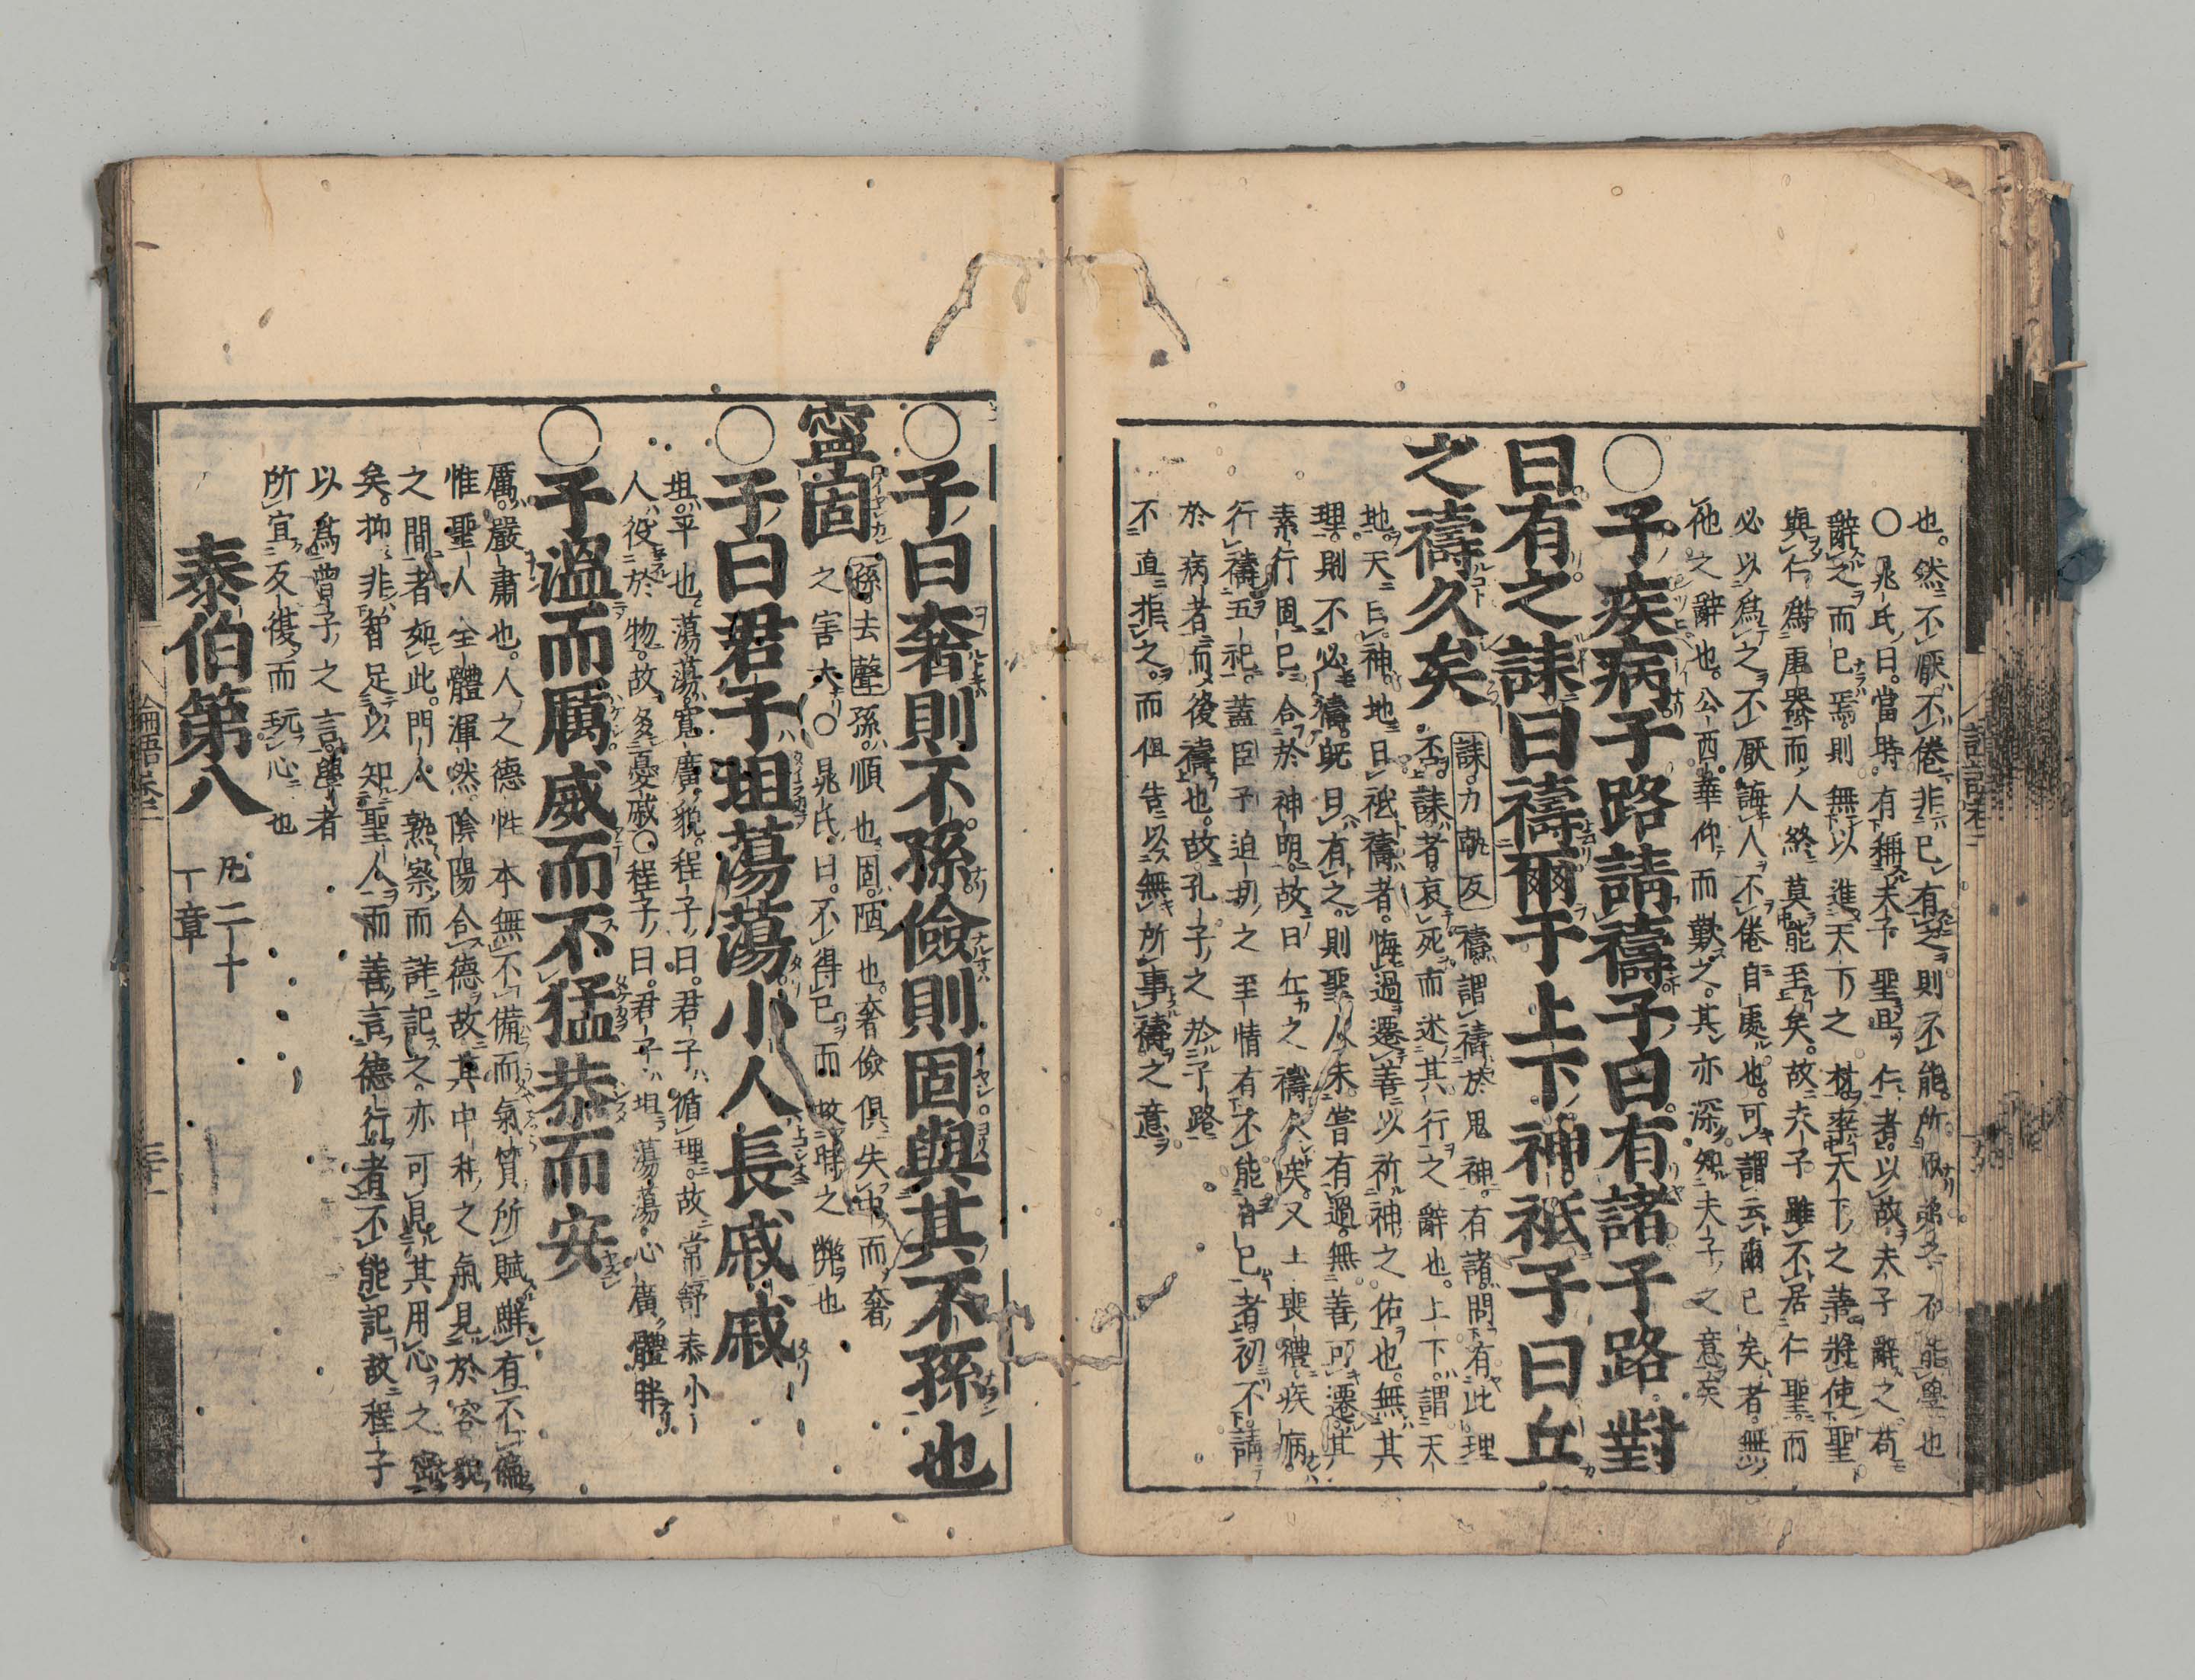 也。然不厭不倦。非己有之則不能。所以弟子不能學也
○晁氏曰。當時有稱夫子聖且仁者。以故夫子辭之。苟
辭之而已焉。則無以進天下之材。率天下之善。將使聖
與仁爲虛器。而人終莫能至矣。故夫子雖不居仁聖。而
必以爲之不厭誨人不倦自處也。可謂云爾已矣者。無
他之辭也。公西華仰而歎之。其亦深知夫子之意矣
○子疾病子路請禱子曰有諸子路對
曰有之誄曰禱爾于上下神祇子曰丘
之禱久矣
誄力軌反 禱。謂禱於鬼神。有諸。問有此理
否。誄者。哀死而述其行之辭也。上下。謂天
地。天曰神。地曰祇。禱者。悔過遷善以祈神之佑也。無其
理。則不必禱。既曰有之。則聖人未嘗有過。無善可遷。其
素行固已合於神明。故曰丘之禱久矣。又士喪禮疾病。
行禱五祀。蓋臣子迫切之至情有不能自已者。初不請
於病者而後禱也。故孔子之於子路
不直拒之。而但告以無所事禱之意。
○子曰奢則不孫儉則固與其不孫也
寧固
孫去聲 孫。順也。固。陋也。奢儉俱失中。而奢
之害大 ○晁氏曰。不得已而救時之弊也
○子曰君子坦蕩蕩小人長戚戚
坦。平也。蕩蕩。寬廣貌。程子曰。君子循理。故常舒泰。小
人役於物。故多憂戚。○程子曰。君子坦蕩蕩。心廣體胖
○子溫而厲威而不猛恭而安
厲。嚴肅也。人之德性本無不備。而氣質所賦鮮有不偏
惟聖人全體渾然。陰陽合德。故其中和之氣見於容貌
之間者如此。門人熟察而詳記之。亦可見其用心之密
矣。抑非智足以知聖人而善言德行者不能記。故程子
以爲曾子之言。學者
所宜反復而玩心也
泰伯第八
凡二十
一章
論語卷之二
三十一